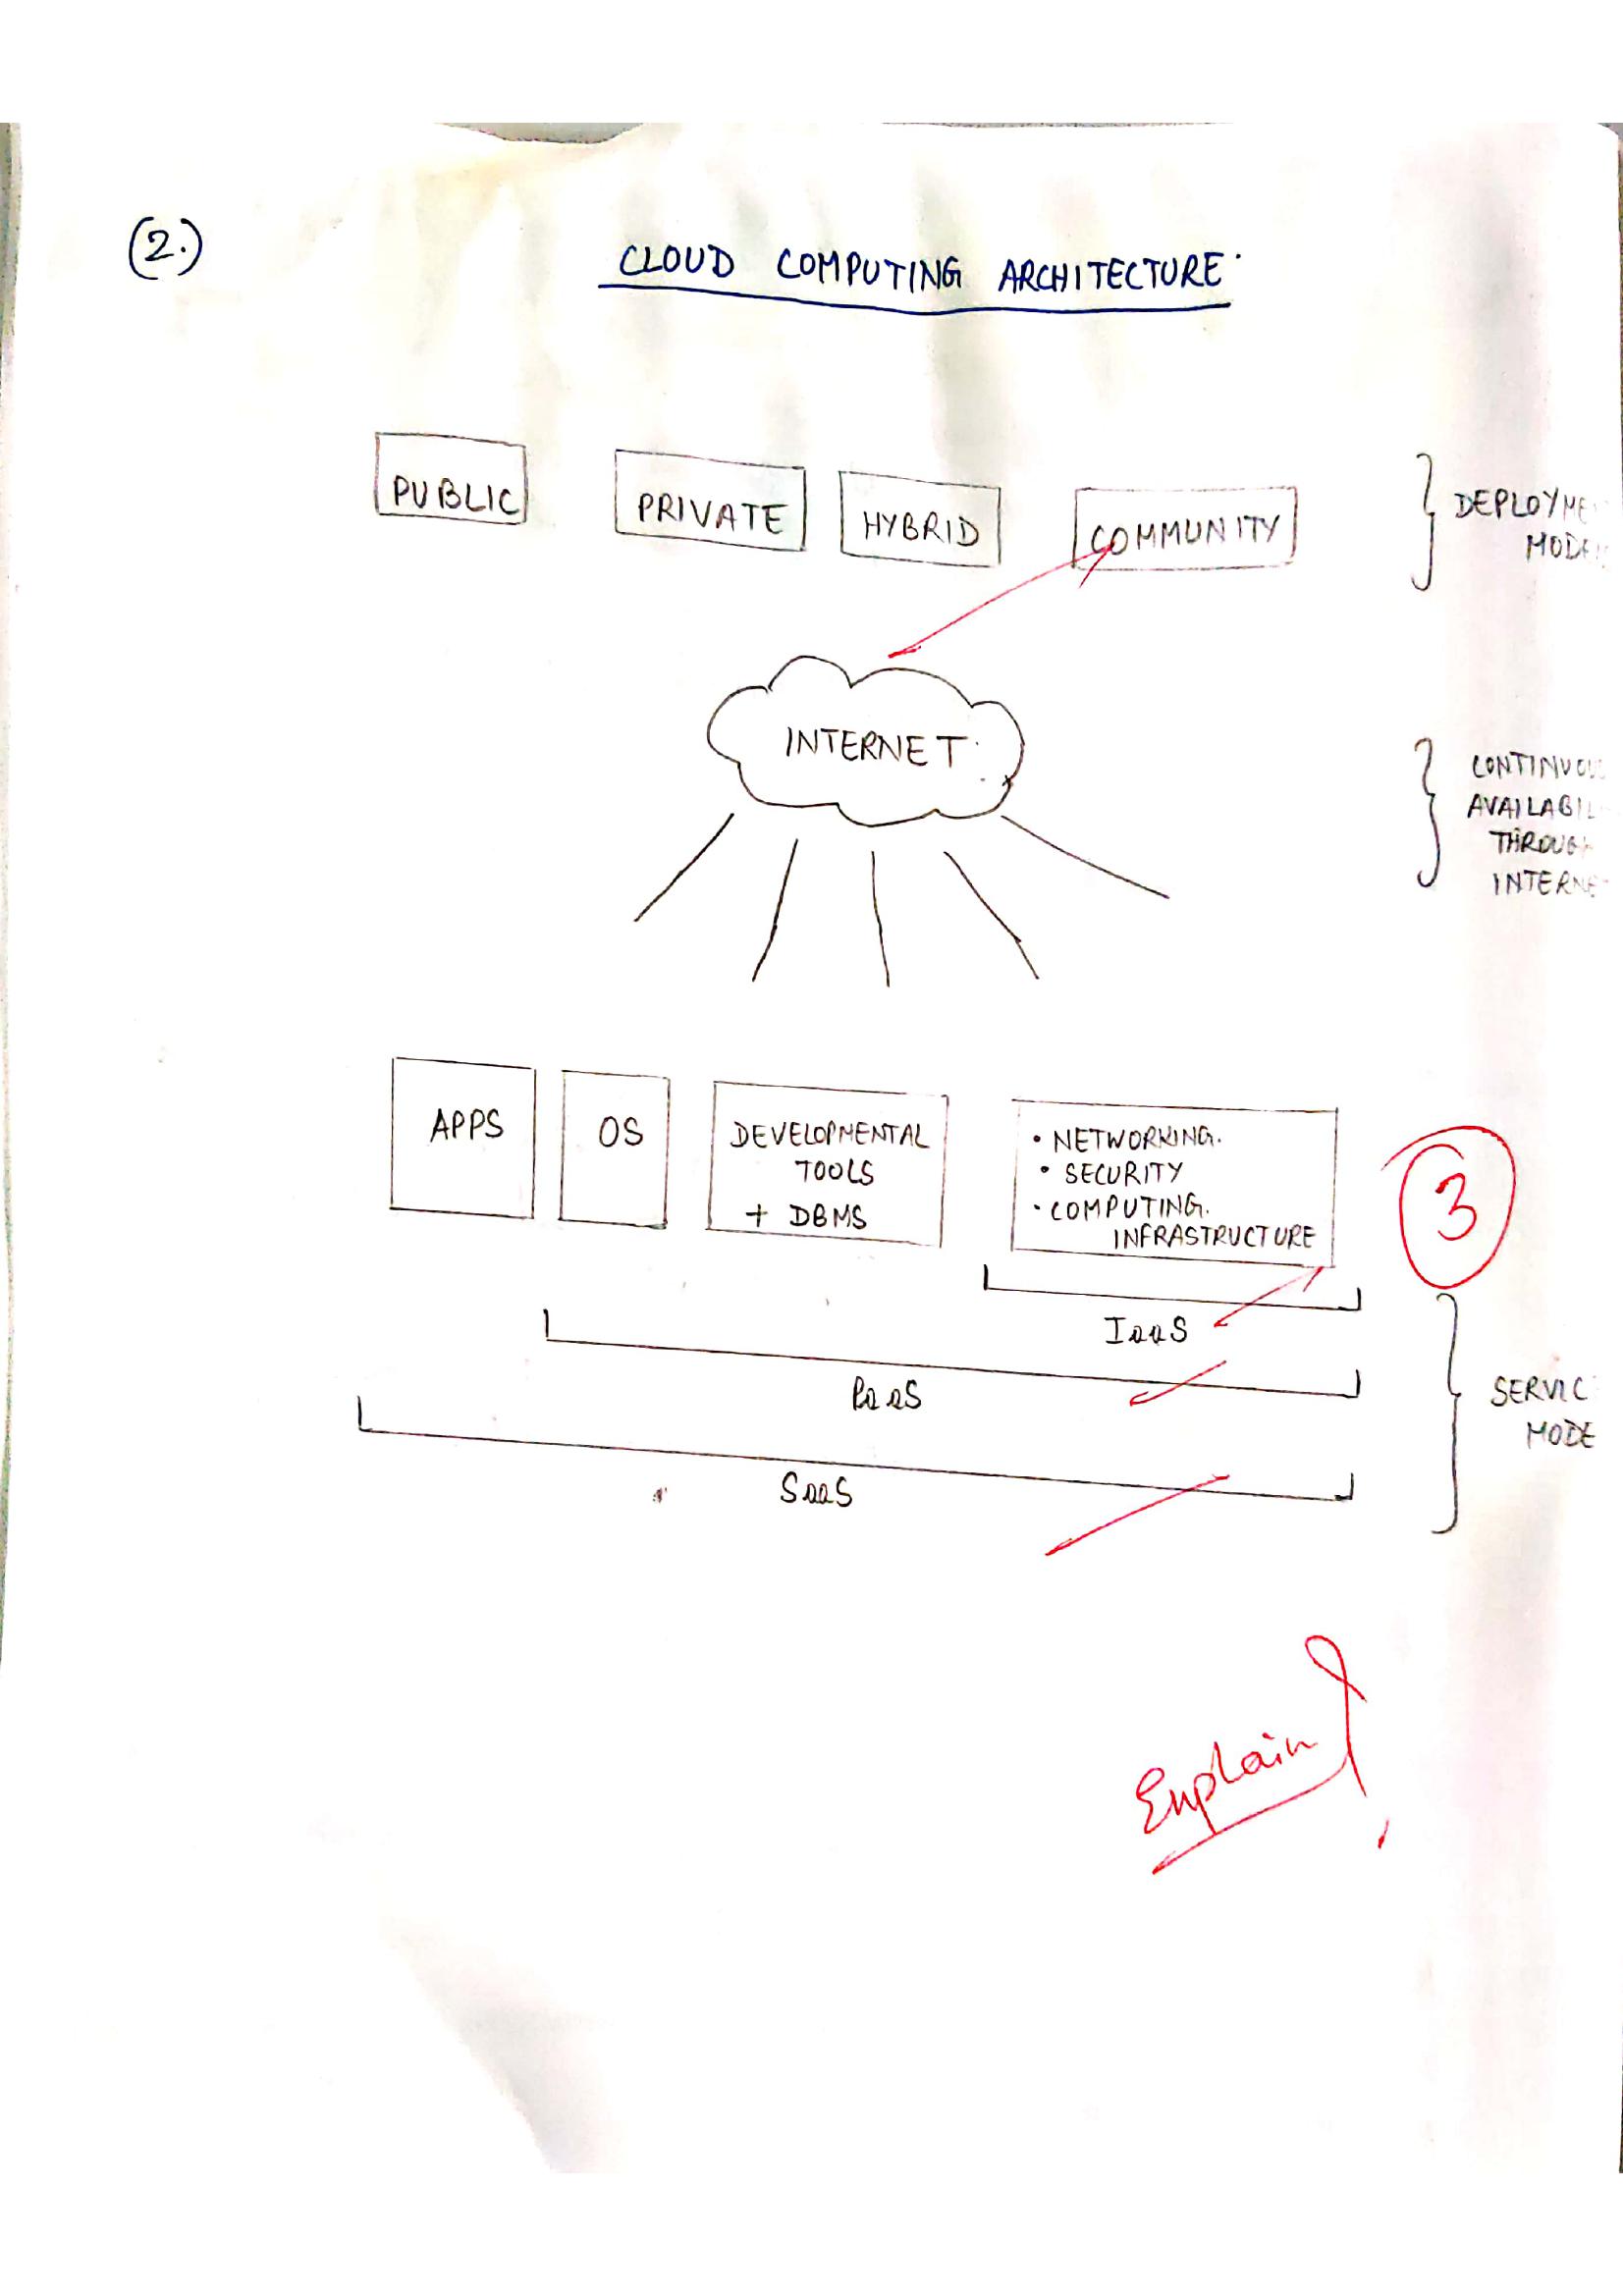 (2.)
CLOUD COMPUTING ARCHITECTURE
PUBLIC
PRIVATE
HYBRID
COMMUNITY
DEPLOYME
MODE
INTERNET
CONTINUO
AVAILABIL
THROUG
INTERNE
APPS
OS
DEVELOPMENTAL
TOOLS
+ DBMS
• NETWORKING.
• SECURITY
• COMPUTING.
INFRASTRUCTURE
3
IaaS
PaaS
SaaS
SERVIC
MODE
Explain